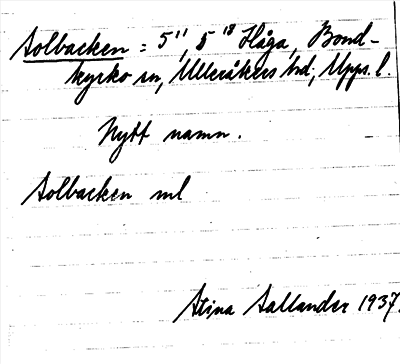 Solbacken : 5¹¹, 5¹⁸ Håga, Bond-
kyrko sn, Ulleråkers hd, Upps. l.
Nytt namn.
Solbacken ml
Stina Sallander 1937.